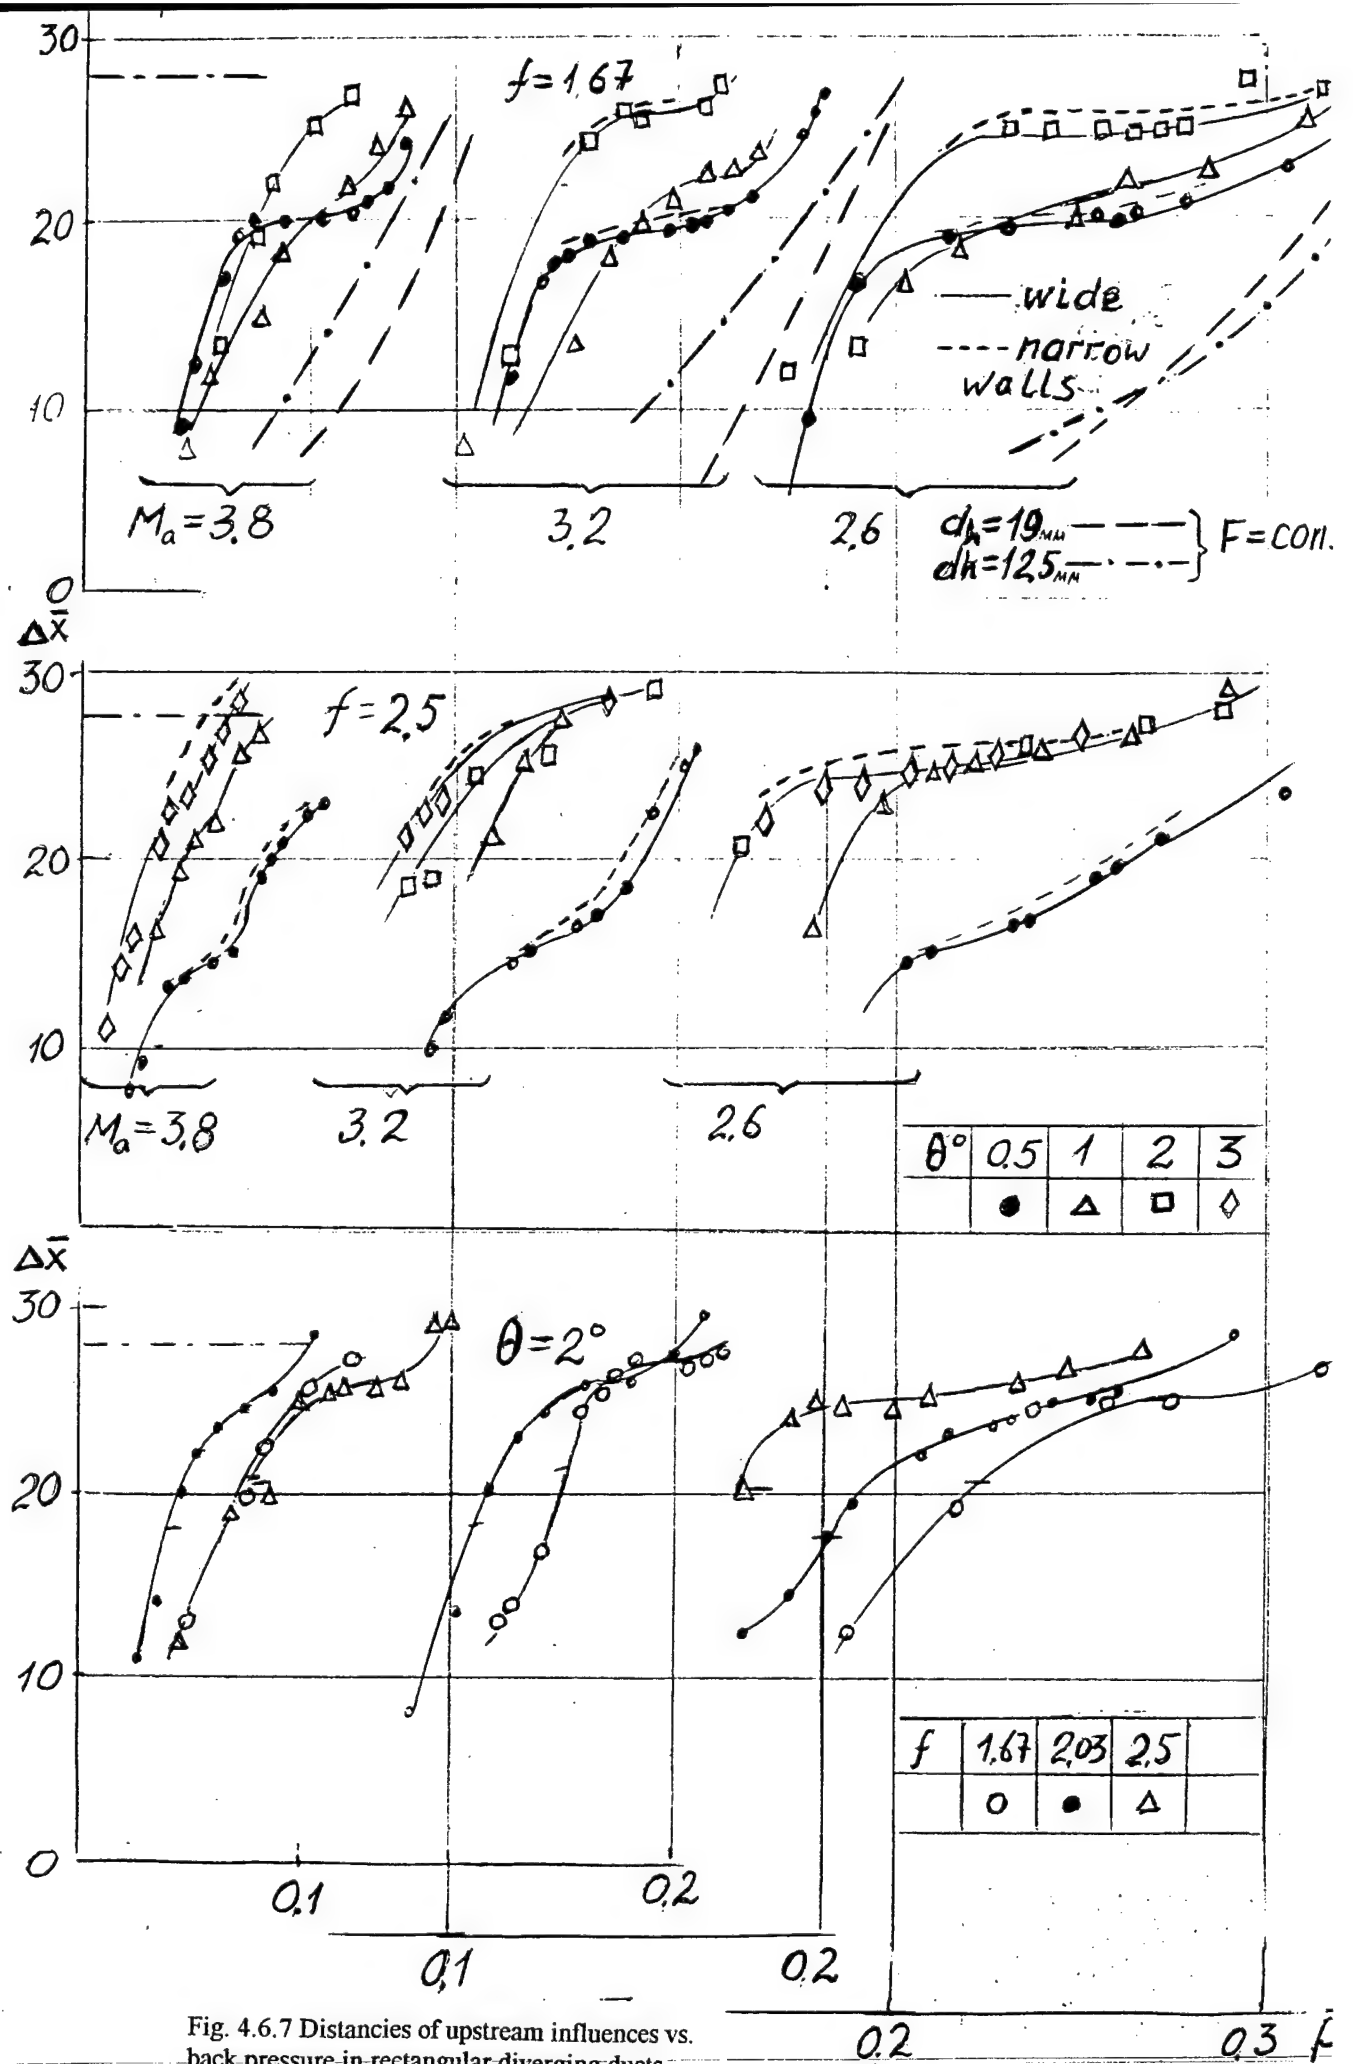 30
f=1.67
20
wide
narrow
walls
10
Ma=3.8
3.2
2.6
dk=19мм
dk=12,5мм
F=con.
0
Δx̄
30
f=2.5
20
10
Ma=3.8
3.2
2.6
θ° 0.5 1 2 3
Δx̄
30
θ=2°
20
10
f 1.67 2,03 2,5
0
0.1
0.2
0,1
0.2
0.2
0.3
Fig. 4.6.7 Distancies of upstream influences vs.
back pressure in rectangular diverging ducts